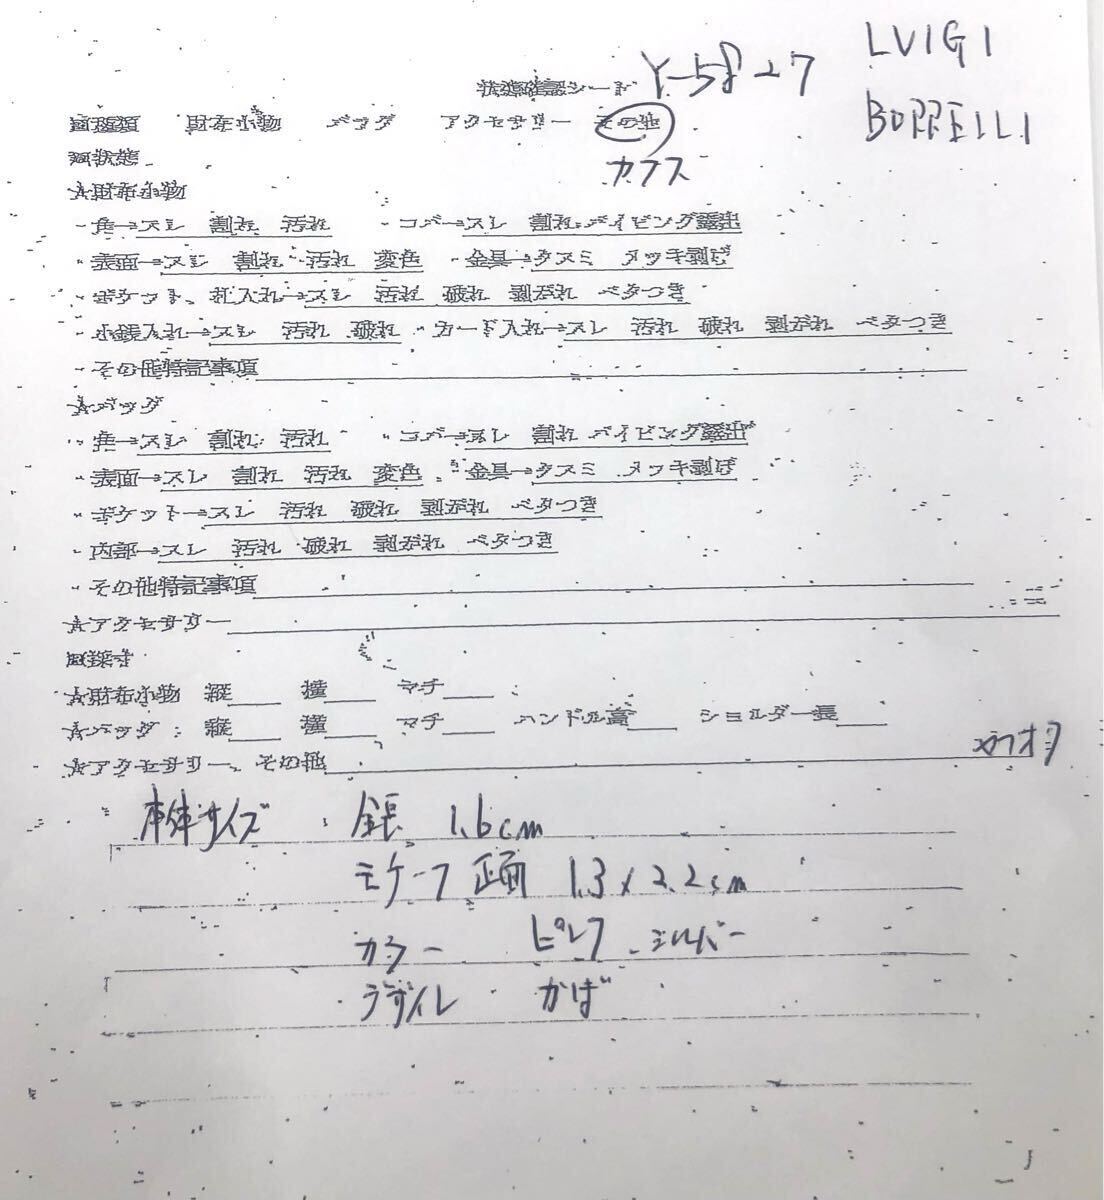 LUIGI
状態確認シート Y-5827
BORRELLI
財布小物 バッグ アクセサリー その他
カフス
☆財布小物
・角→スレ 割れ 汚れ ・コバ→スレ 割れ パイピング露出
・表面→スレ 割れ 汚れ 変色 ・金具→クスミ メッキ剥げ
・ポケット、札入れ→スレ 汚れ 破れ 剥がれ ベタつき
・小銭入れ→スレ 汚れ 破れ ・カード入れ→スレ 汚れ 破れ 剥がれ ベタつき
・その他特記事項
☆バッグ
・角→スレ 割れ 汚れ ・コバ→スレ 割れ パイピング露出
・表面→スレ 割れ 汚れ 変色 ・金具→クスミ メッキ剥げ
・ポケット→スレ 汚れ 破れ 剥がれ ベタつき
・内部→スレ 汚れ 破れ 剥がれ ベタつき
・その他特記事項
☆アクセサリー
☆財布小物 縦 横 マチ
☆バッグ : 縦 横 マチ ハンドル高 ショルダー長
☆アクセサリー、その他
本体サイズ 全長 1.6cm
モチーフ 正面 1.3×2.2cm
カラー ピンク シルバー
デザイン かば